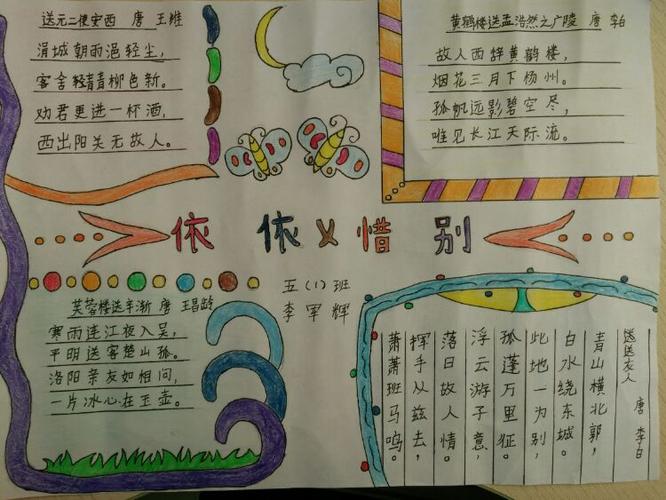 送元二使安西 唐 王维
涓城朝雨浥轻尘，
客舍轻青青柳色新。
劝君更进一杯酒，
西出阳关无故人。
黄鹤楼送孟浩然之广陵 唐 李白
故人西辞黄鹤楼，
烟花三月下杨州。
孤帆远影碧空尽，
唯见长江天际流。
依依惜别
五(1)班
李军辉
芙蓉楼送辛渐 唐 王昌龄
寒雨连江夜入吴，
平明送客楚山孤。
洛阳亲友如相问，
一片冰心在玉壶。
送送友人 唐 李白
青山横北郭，
白水绕东城。
此地一为别，
孤蓬万里征。
浮云游子意，
落日故人情。
挥手从兹去，
萧萧班马鸣。